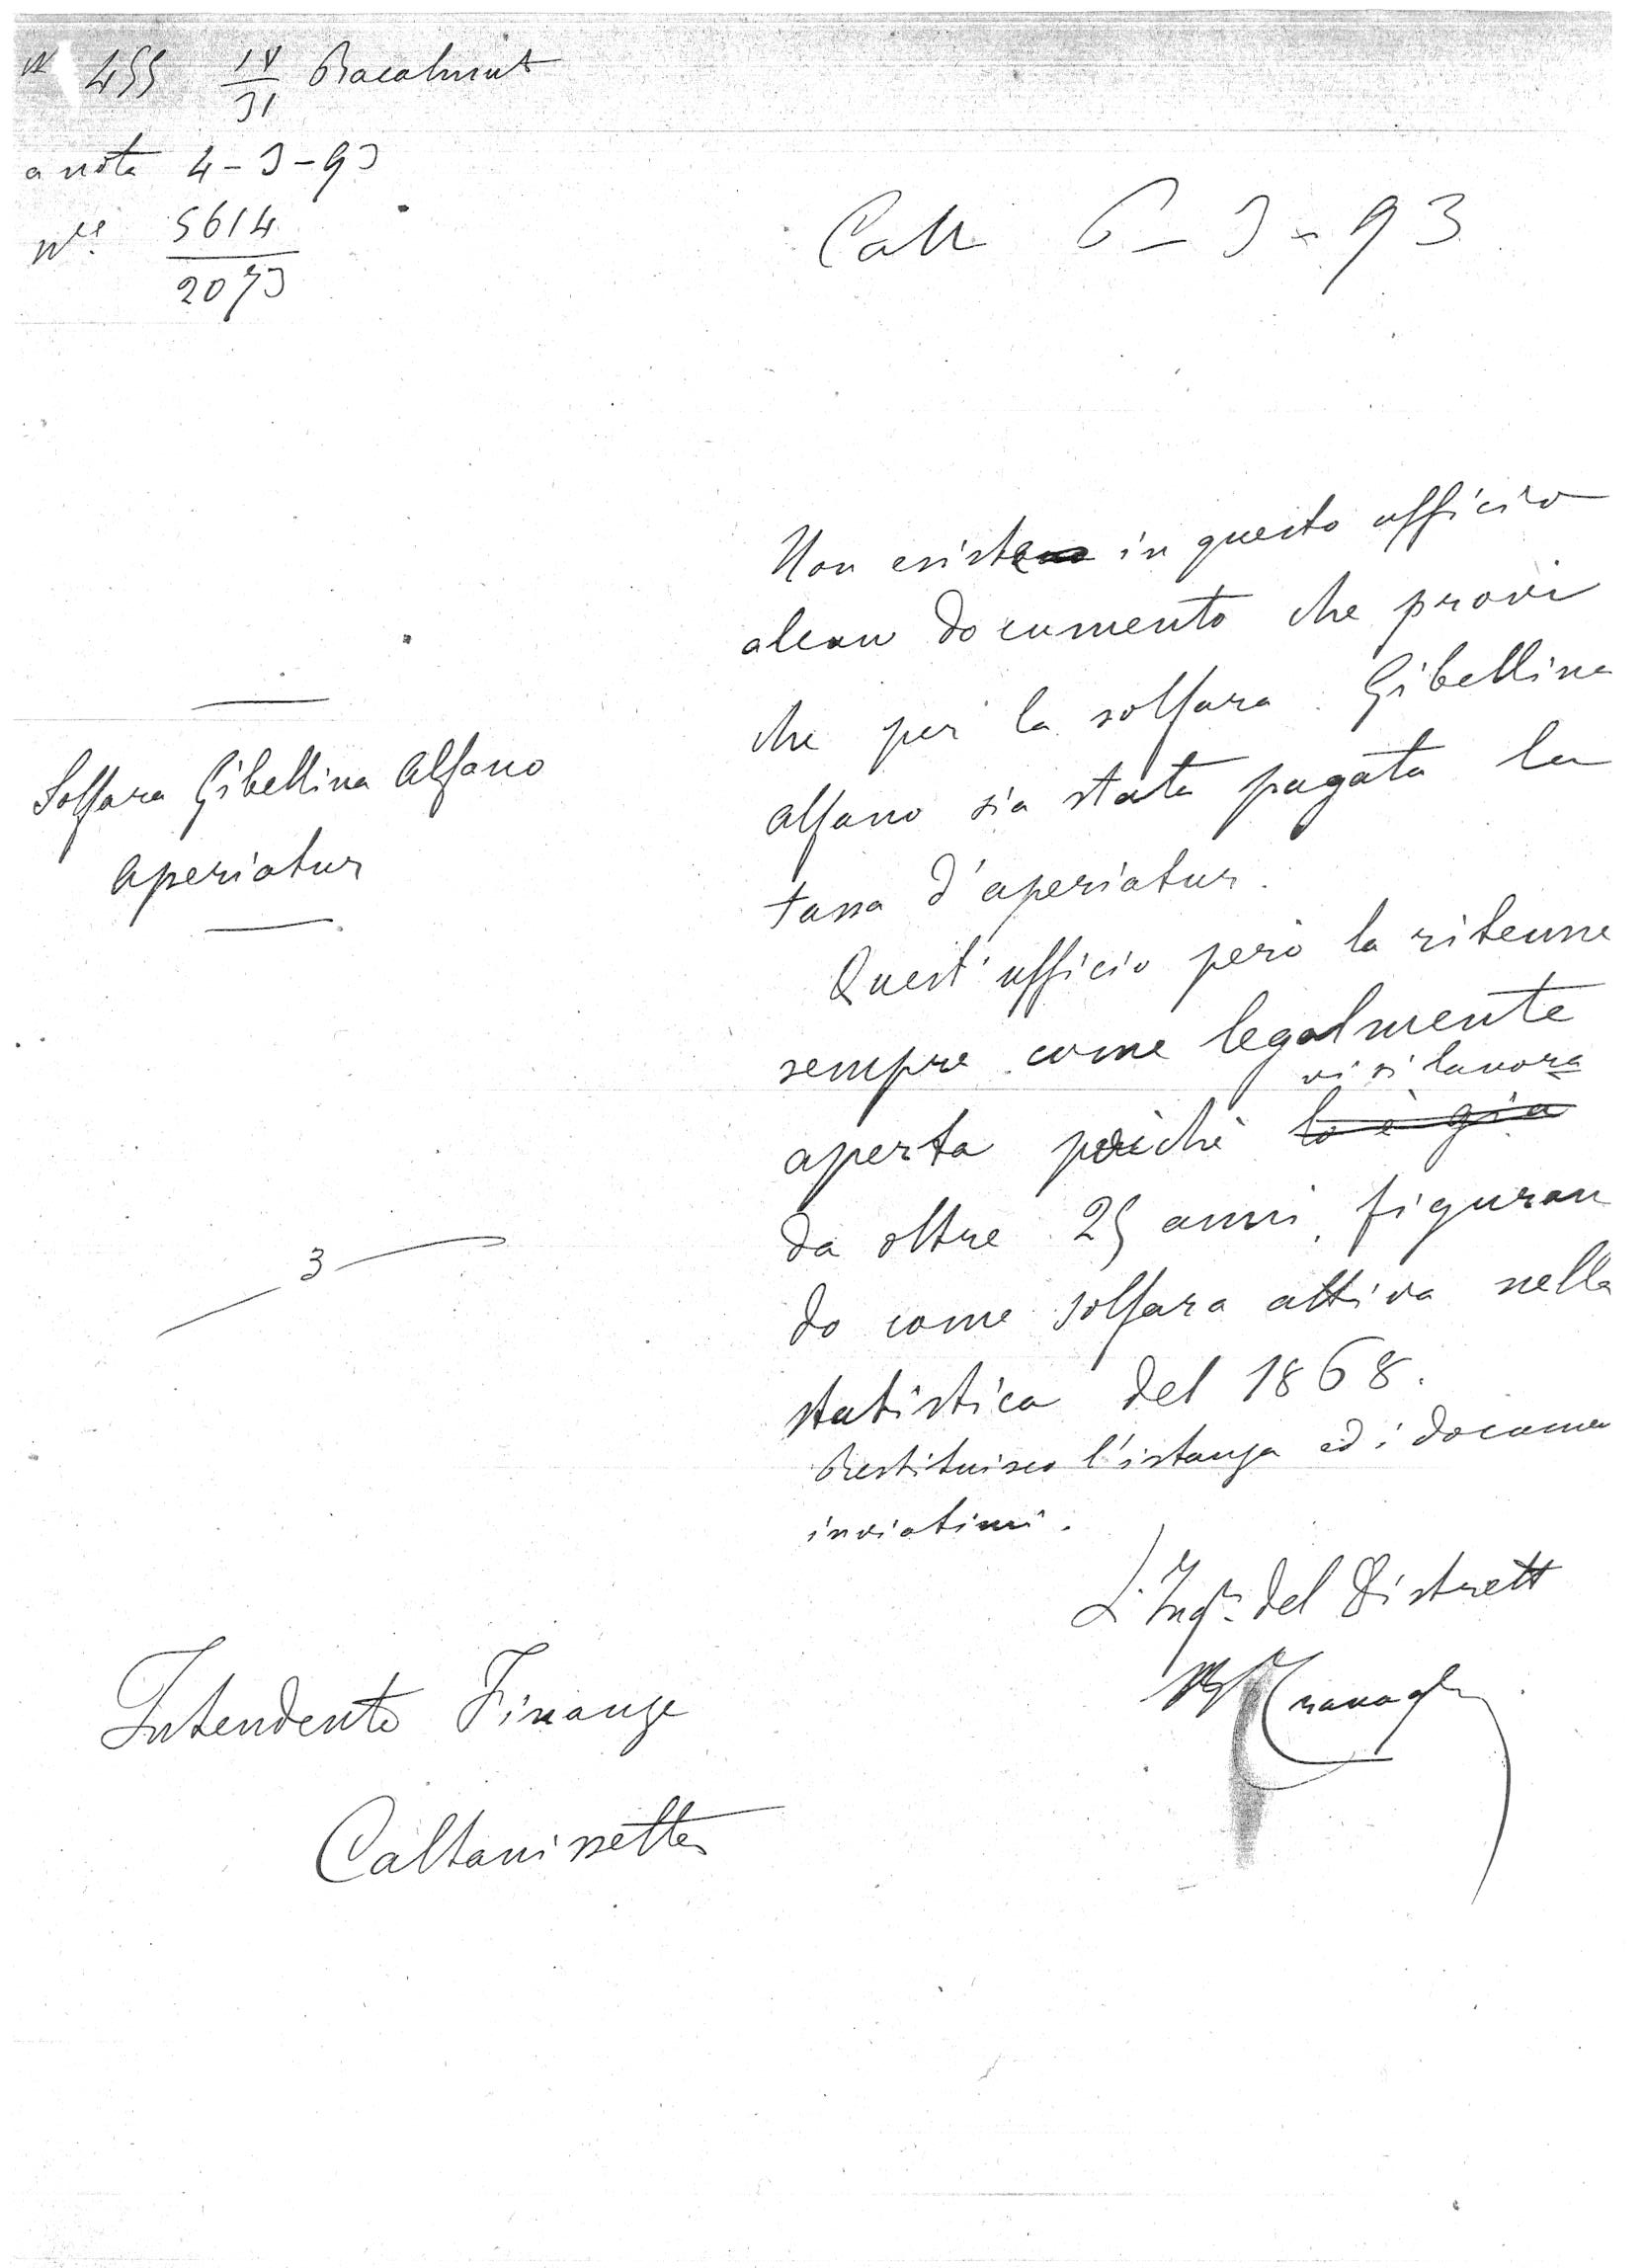 N 455 IV/31 Racalmuto
a nota 4-3-93
N.ri 5614/2073
Calt 6-3-93
Non esiste in questo ufficio
alcun documento che provi
che per la solfara Gibellina
Alfano sia stata pagata la
tassa d'aperiatur.
Quest'ufficio però la ritenne
sempre come legalmente
vi si lavora
aperta poichè lo è già
da oltre 25 anni, figuran
do come solfara attiva nella
statistica del 1868.
Restituisco l'istanza ed i docume
inviatimi.
L'Ingr. del Distrett
Solfara Gibellina Alfano
Aperiatur
3
Intendente Finanze
Caltanissetta